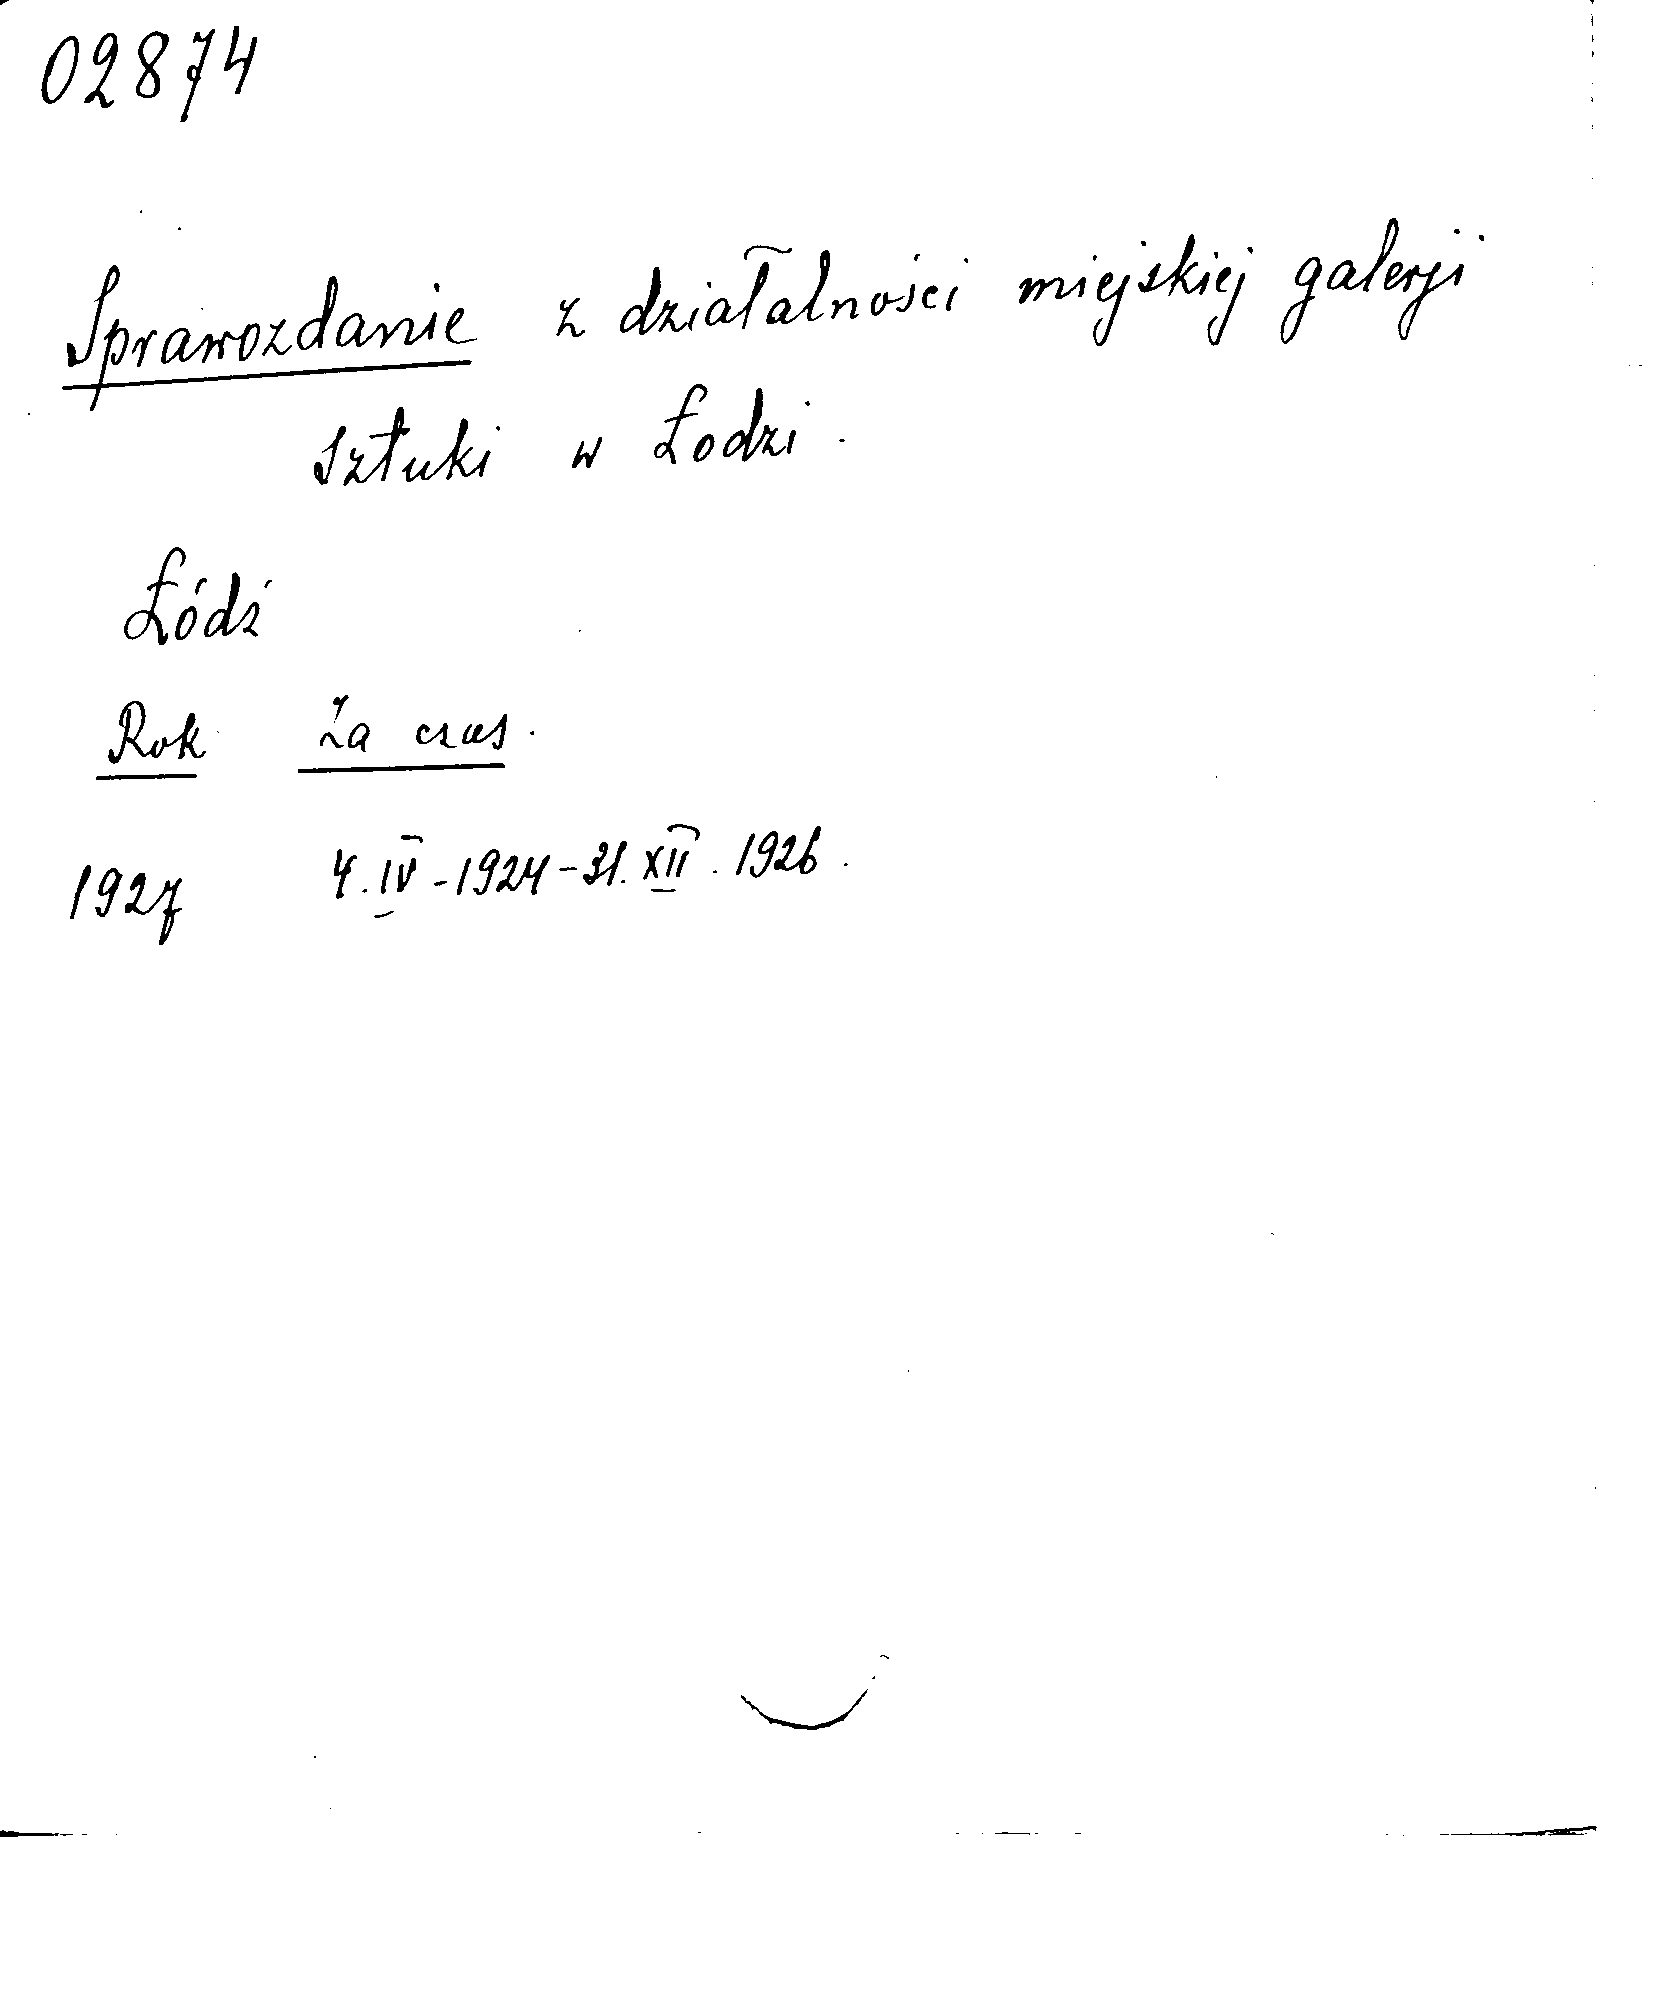 02874
Sprawozdanie z działalności miejskiej galerji
sztuki w Łodzi.
Łódź
Rok Za czas.
1927 4.IV-1924-31.XII.1926.